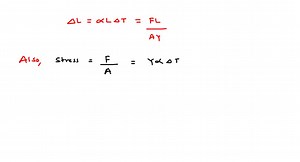 ΔL = αLΔT = FL/AY
Also, Stress = F/A = YαΔT